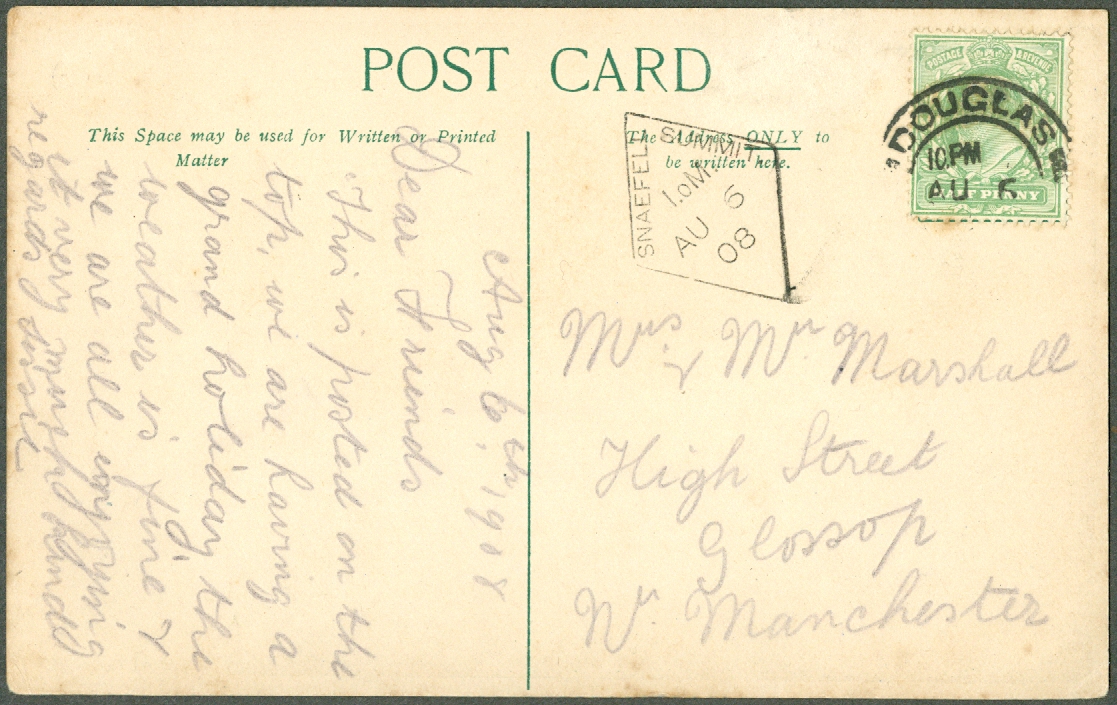 POST CARD
This Space may be used for Written or Printed
Matter
The Address ONLY to
be written here.
POSTAGE & REVENUE
HALF PENNY
DOUGLAS
10.PM
AU 6
SNAEFELL SUMMIT
I.OM.
AU 6
08
Aug 6th 1908
Dear Friends
This is posted on the
top, we are having a
grand holiday, the
weather is fine &
we are all enjoying
it very much, kind
regards
Mrs & Mr Marshall
High Street
Glossop
Nr Manchester